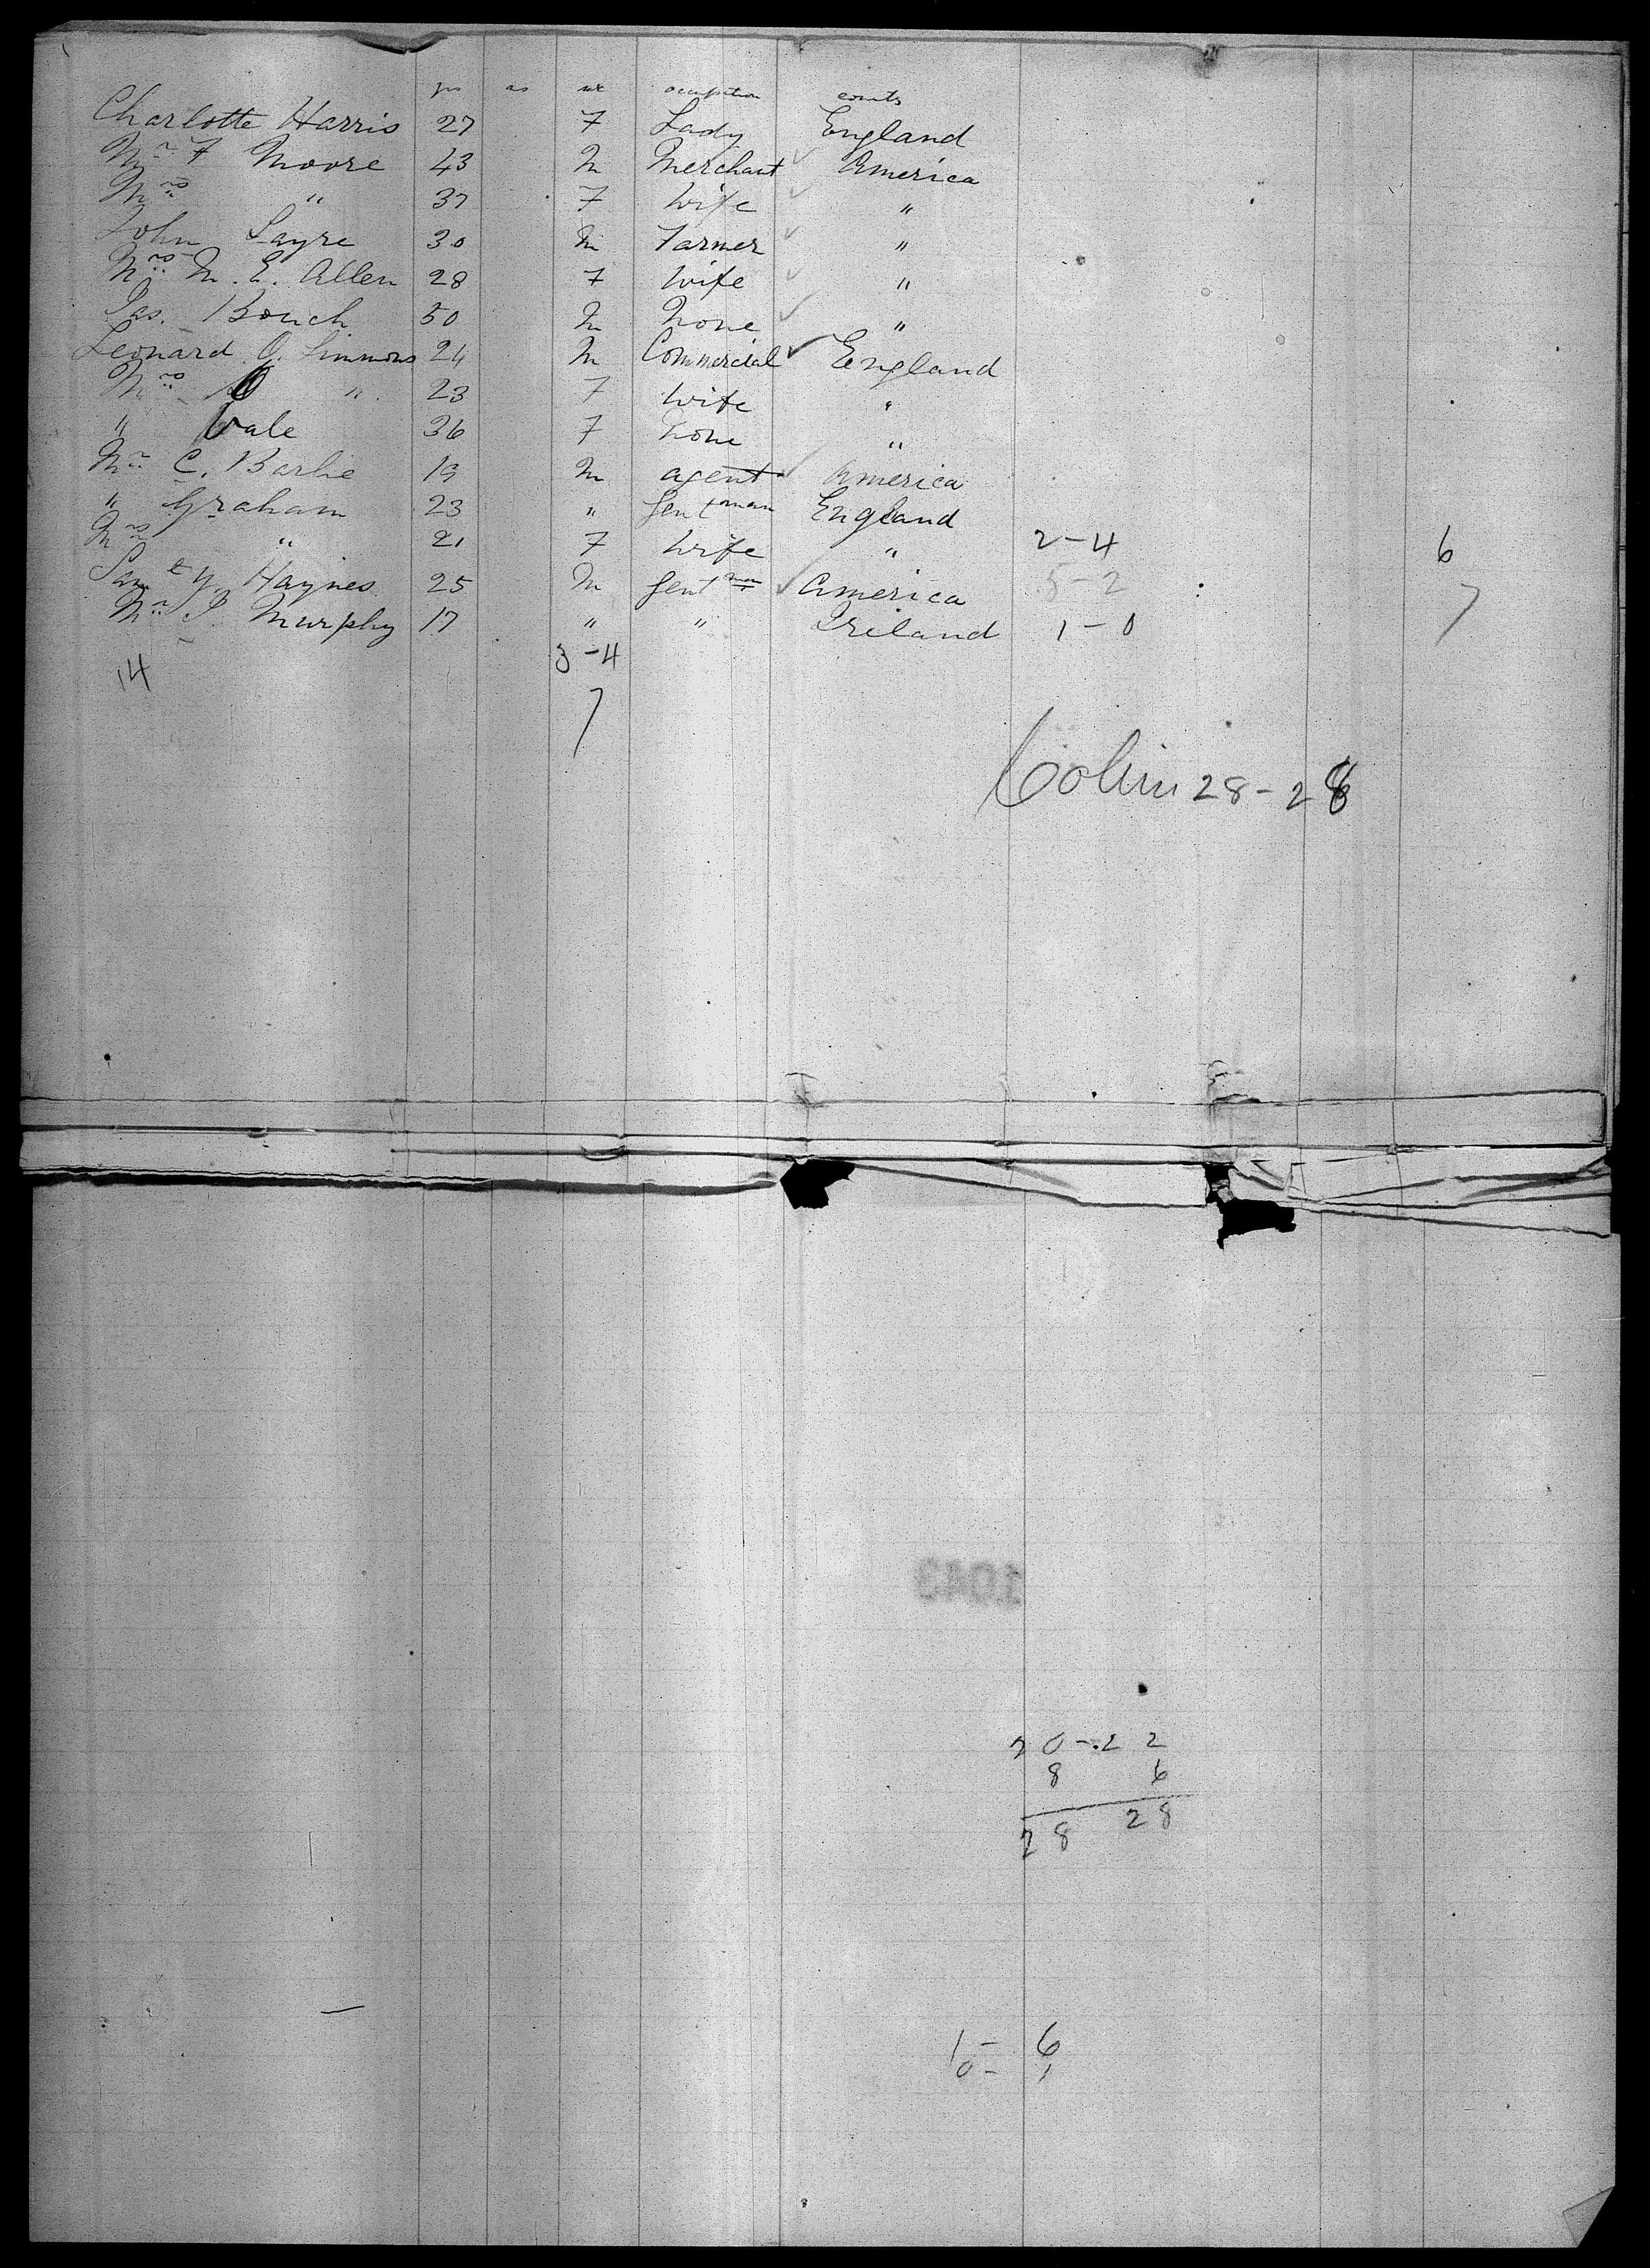 yrs ms sex occupation county
Charlotte Harris 27 F Lady England
Mr F Moore 43 M Merchant America
Mrs " 37 F Wife "
John Sayre 30 M Farmer "
Mrs M. E. Allen 28 F Wife "
Jas. Bouch 50 M None "
Leonard O. Simmons 24 M Commercial England
Mrs " 23 F Wife "
" Vale 36 F None "
Mr C. Barlie 19 M agent America
" Graham 23 " Gentman England
Mrs " 21 F Wife " 2-4 6
Saml Y. Haynes 25 M Gentman America 5-2 7
Mr J. Murphy 17 " " Ireland 1-0
14 3-4
7
28-28
1043
20-22
8 6
28 28
1- 6
0- 1